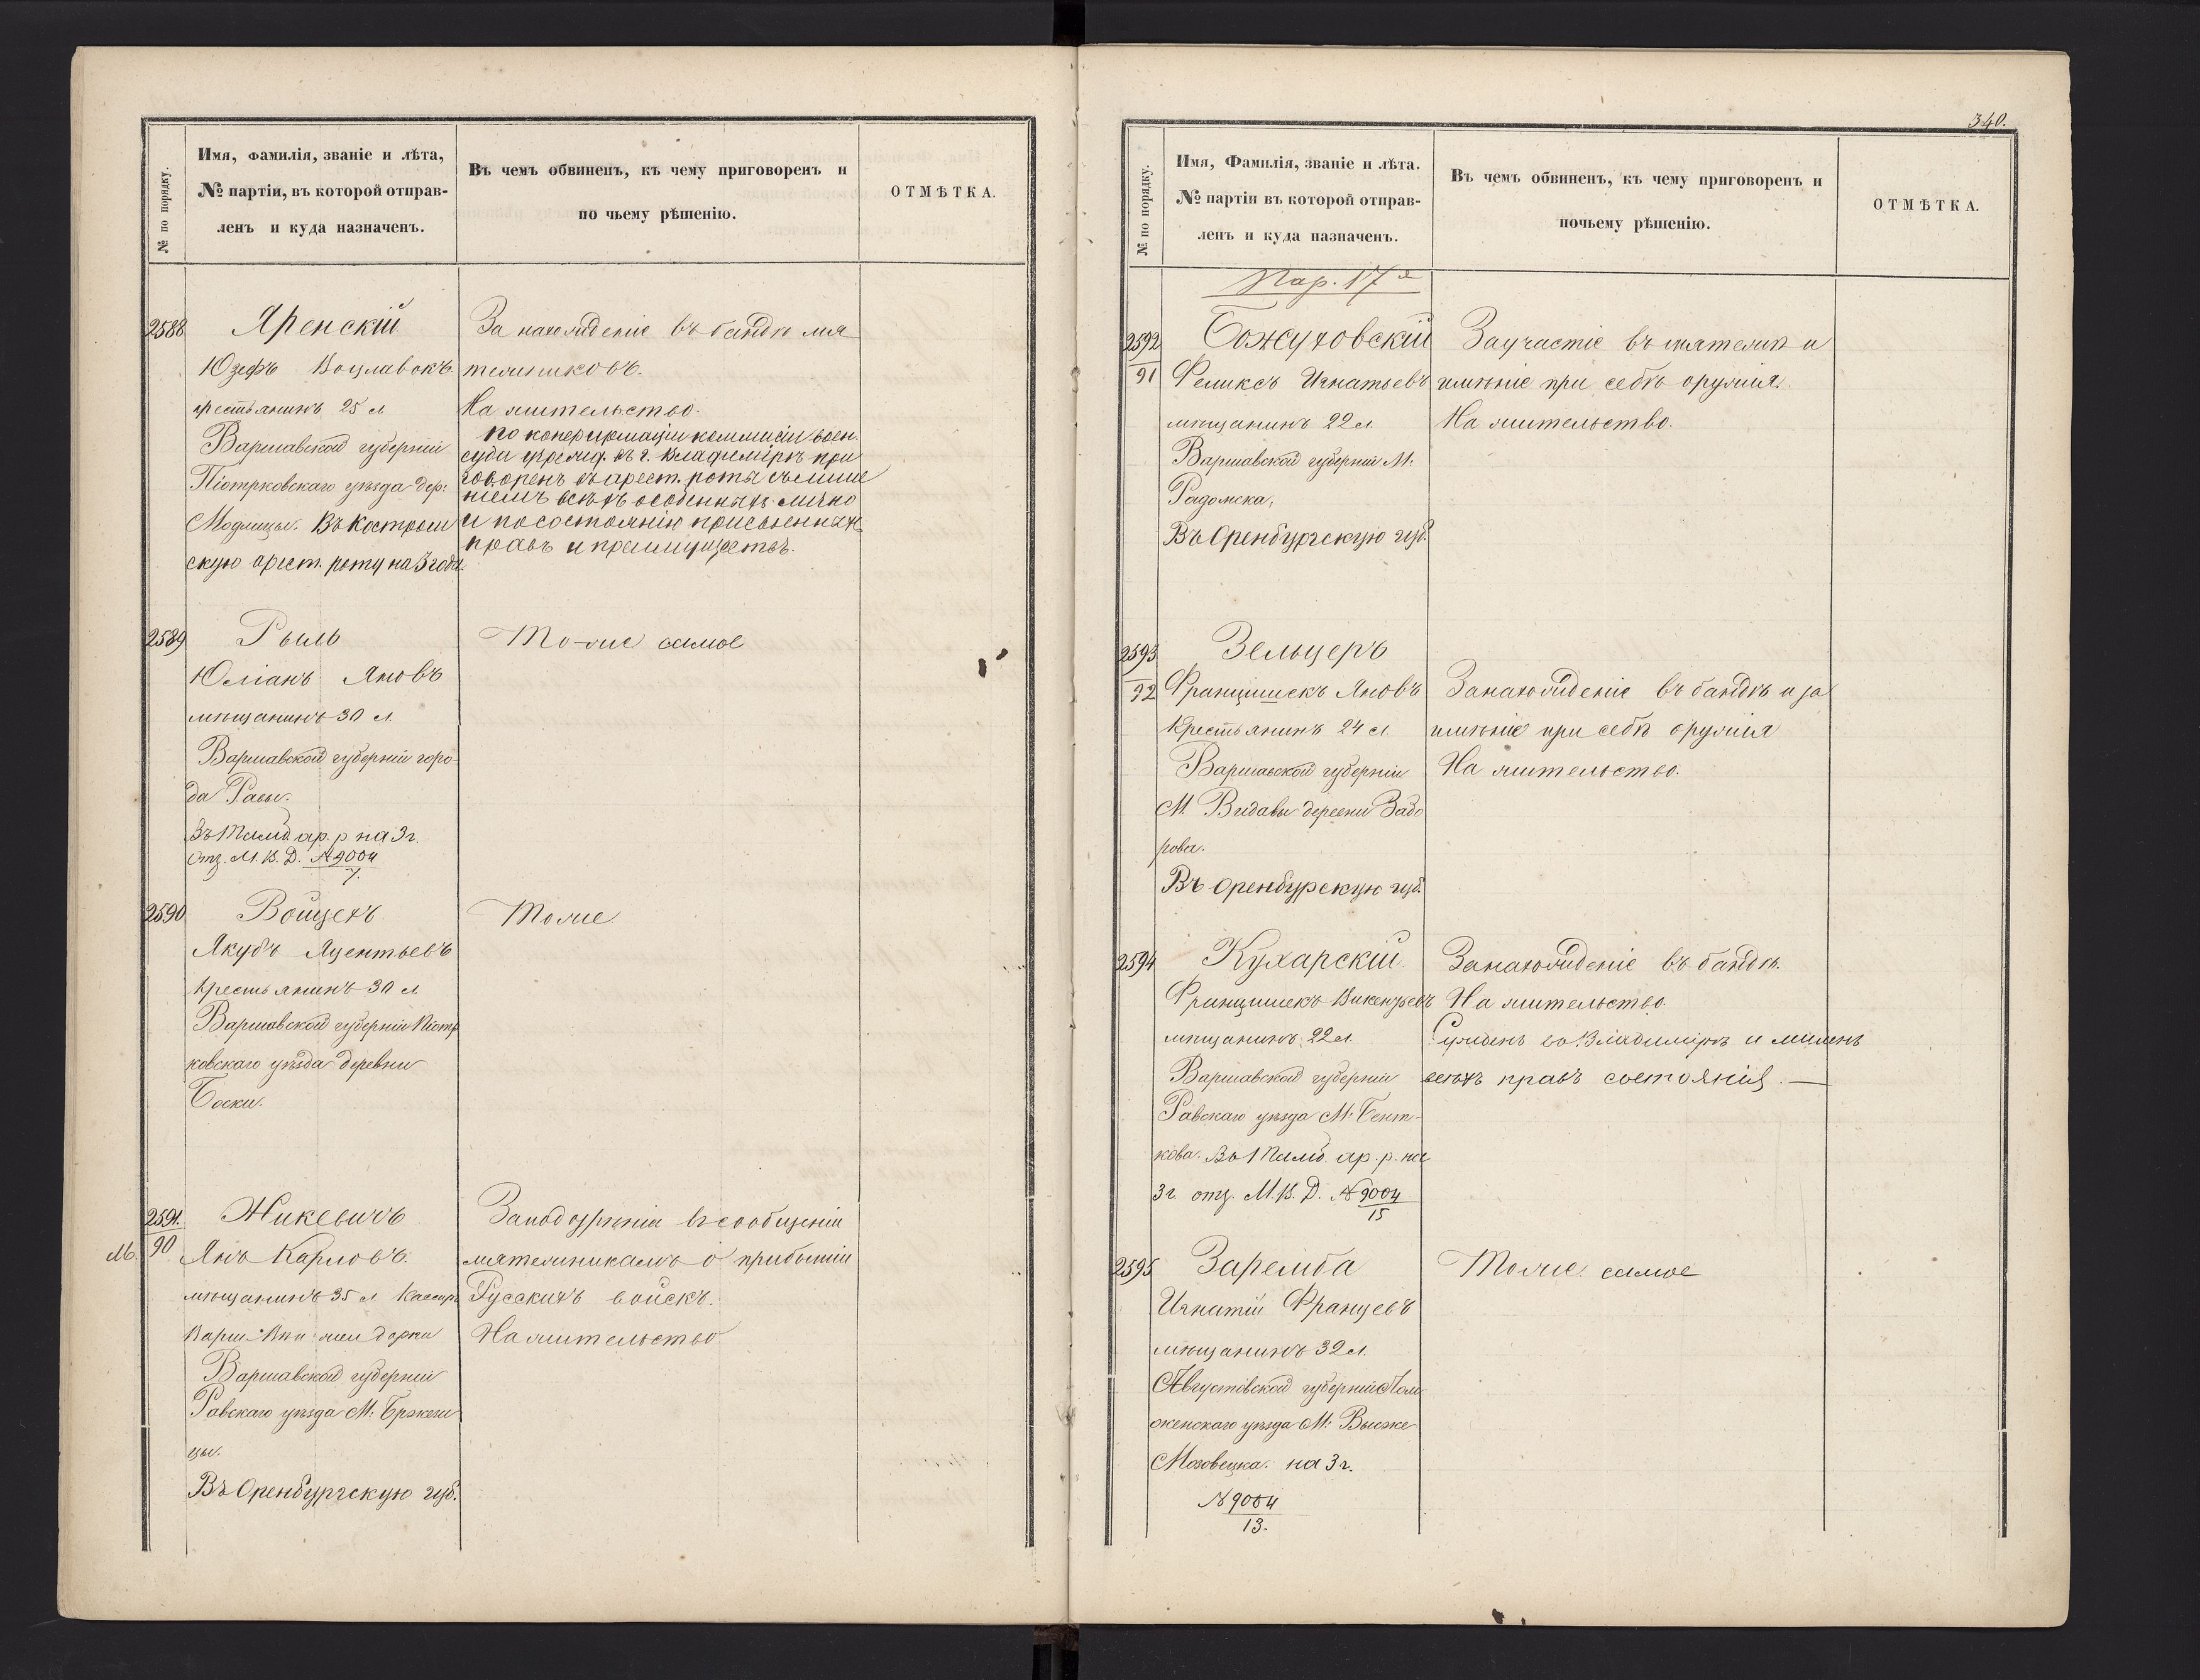 № по порядку.
Имя, фамилія, званіе и лѣта,
№ партіи, въ которой отправ-
ленъ и куда назначенъ.
Въ чемъ обвиненъ, къ чему приговоренъ и
по чьему рѣшенію.
ОТМѢТКА.
2588
Яренскій
Юзефъ
крестьянинъ 25 л
Варшавской губерніи
Піотрковскаго уѣзда дер:
Въ Костром
скую арест. роту на 3 года.
За нахожденіе въ бандѣ мя
тежниковъ.
На жительство.
По конфирмаціи коммисіи воен.
суда учрежд. въ г. Владимірѣ при
говоренъ въ арест. роты съ лише
ніемъ всѣхъ особенныхъ лично
и по состоянію присвоенныхъ
правъ и преимуществъ.
2589
Рыль
Юліанъ Яновъ
мѣщанинъ 30 л.
Варшавской губерніи горо-
да Равы.
Въ Тамб. ар. р на 3 г.
Отз. М. В. Д. № 9004
7.
То-же самое
2590
Войцехъ
Якубъ
крестьянинъ 30 л
Варшавской губерніи Піотр
ковскаго уѣзда деревни
Боски.
Тоже
2591.
90
М.
Жикевичъ
Янъ Карловъ.
мѣщанинъ 35 л. Кассиръ
Варш: жел дорки
Варшавской губерніи
Равскаго уѣзда М:
цы.
Въ Оренбургскую губ.
Заподозрѣніи въ сообщеніи
мятежникамъ о прибытіи
Русскихъ войскъ.
На жительство
340.
№ по порядку.
Имя, Фамилія, званіе и лѣта.
№ партіи въ которой отправ-
ленъ и куда назначенъ.
Въ чемъ обвиненъ, къ чему приговоренъ и
почьему рѣшенію.
ОТМѢТКА.
Пар. 17я
2592
91
Божуховскій
Феликсъ Игнатьевъ
мѣщанинъ 22 л.
Варшавской губерніи М:
Радомска,
Въ Оренбургскую губ.
За участіе въ мятежѣ и
имѣніе при себѣ оружія.
На жительство.
2593
92
Зельцеръ
Францишекъ Яновъ
Крестьянинъ 24 л.
Варшавской губерніи
М. Видавы деревни Задо
рова.
Въ Оренбургскую губ.
За нахожденіе въ бандѣ и за
имѣніе при себѣ оружія
На жительство.
2594
Кухарскій
Францишекъ Викентьевъ
мѣщанинъ 22 л.
Варшавской губерніи
Равскаго уѣзда М:
кова. Въ Тамб. ар. р. на
3 г. отз. М. В. Д. № 9004
15
За нахожденіе въ бандѣ.
На жительство.
Сужденъ во Владимірѣ и лишенъ
всѣхъ правъ состоянія. —
2595
Заремба
Игнатій Францевъ
мѣщанинъ 32 л.
Августовской губерніи Лом
женскаго уѣзда М: Высоке
Мазовецка. на 3 г.
№ 9004
13.
Тоже самое